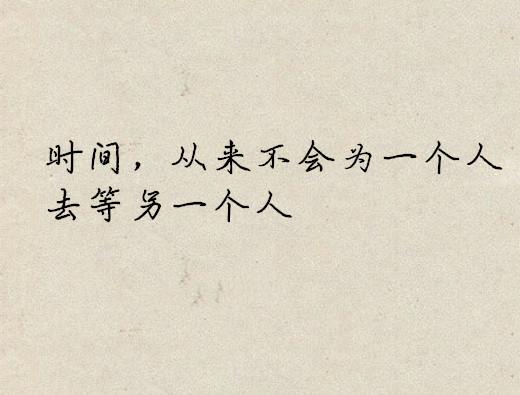 时间，从来不会为一个人
去等另一个人